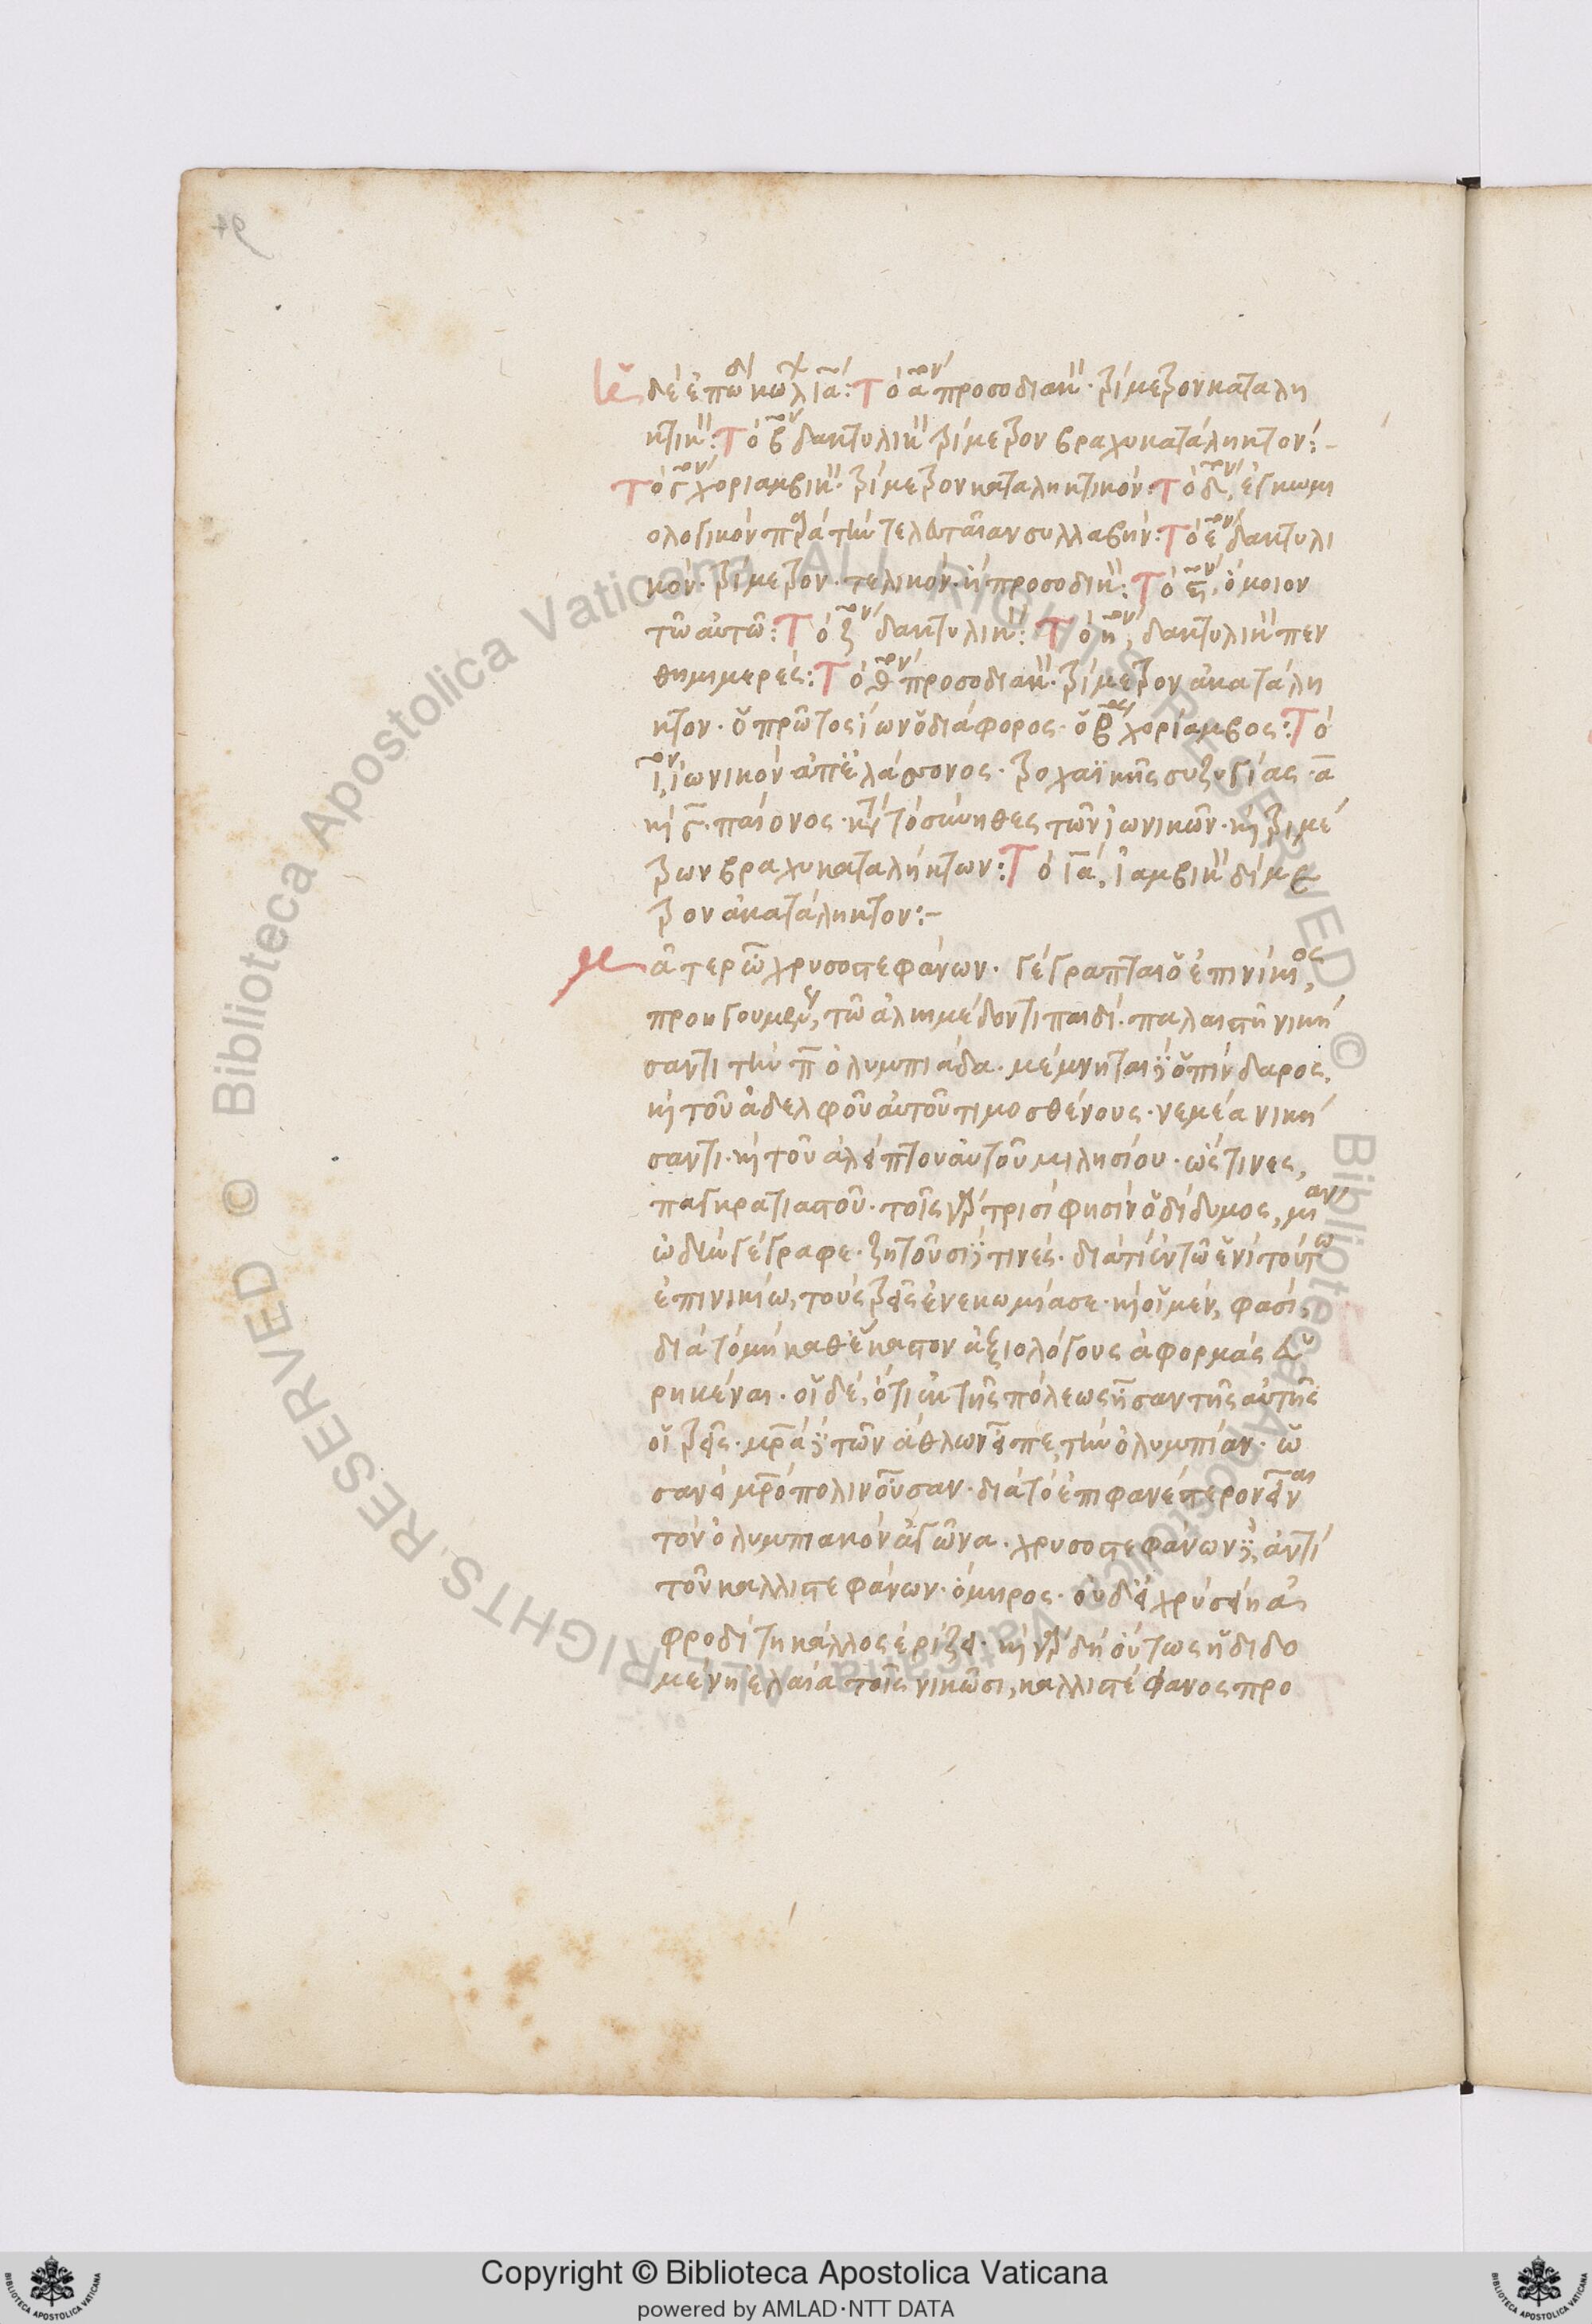 αἱ δὲ ἐπωδ κώλ ια: Τὸ α̅ον προσοδιακ· τρίμετρον καταλη
κτικ: Τὸ β̅ον δακτυλικ τρίμετρον βραχυκατάληκτον:–
Τὸ γ̅ον χοριαμβικ· τρίμετρον καταληκτικόν: Τὸ δ̅ον, ἐγκωμι
ολογικὸν παρὰ τὴν τελευταίαν συλλαβήν: Τὸ ε̅ον δακτυλι
κόν· τρίμετρον· τελικὸν· ἢ προσοδικ: Τὸ ϛ̅ον, ὅμοιον
τῶ αὐτῶ: Τὸ ζ̅ον δακτυλικ: Τὸ η̅ον, δακτυλικ πεν
θημιμερές: Τὸ θ̅ον προσοδιακ· τρίμετρον ἀκατάλη
κτον· ὁ πρῶτος ἰων ὁ διάφορος· ὁ β̅ος χορίαμβος: Τὸ
ι̅ον, ἰωνικὸν ἀπ' ἐλάσσονος· τροχαϊκῆς συζυγίας· α̅
κὶ γ̅· παίονος· κατὰ τὸ σύνηθες τῶν ἰωνικῶν· κὶ τριμέ
τρων βραχυκαταλήκτων: Τὸ ια̅, ἰαμβικ δίμε
τρον ἀκατάληκτον:–
μᾶτερ ὦ χρυσοστεφάνων· γέγραπται ὁ ἐπινίκιος,
προηγουμένως, τῶ ἀλκιμέδοντι παιδί· παλαιστῆ νικη
σαντι τὴν π̅ ὀλυμπιάδα· μέμνηται δὲ ὁ πίνδαρος,
κὶ τοῦ ἀδελφοῦ αὐτοῦ τιμοσθένους· νεμέα νικη
σαντι· κὶ τοῦ ἀλείπτου αὐτοῦ μιλησίου· ὡς τινες,
παγκρατιαστοῦ· τοῖς γὰρ τρισί φησιν ὁ δίδυμος, μίαν
ὠδὴν γέγραφε· ζητοῦσι δὲ τινές· διατί ἐν τῶ ἑνὶ τούτω
ἐπινικίω, τοὺς τρεῖς ἐνεκωμίασε· κὶ οἱ μέν, φασί,
διὰ τὸ μὴ καθ' ἕκαστον ἀξιολόγους ἀφορμὰς εὑ
ρηκέναι· οἱ δέ, ὅτι ἐκ τῆς πόλεως ἦσαν τῆς αὐτῆς
οἱ τρεῖς· μητέρα δὲ τῶν ἄθλων εἶπε, τὴν ὀλυμπίαν· ὡ
σανεὶ μητρόπολιν οὖσαν· διὰ τὸ ἐπιφανέστερον εἶναι
τὸν ὀλυμπιακὸν ἀγῶνα· χρυσοστεφάνων δὲ, ἀντὶ
τοῦ καλλιστεφάνων· ὅμηρος· οὐδ' εἰ χρυσείη ἀ
φροδίτη κάλλος ἐρίζει· κὶ γὰρ δὴ οὕτως ἡ διδο
μένη ἐλαία τοῖς νικῶσι, καλλιστέφανος προ
Copyright © Biblioteca Apostolica Vaticana
powered by AMLAD·NTT DATA